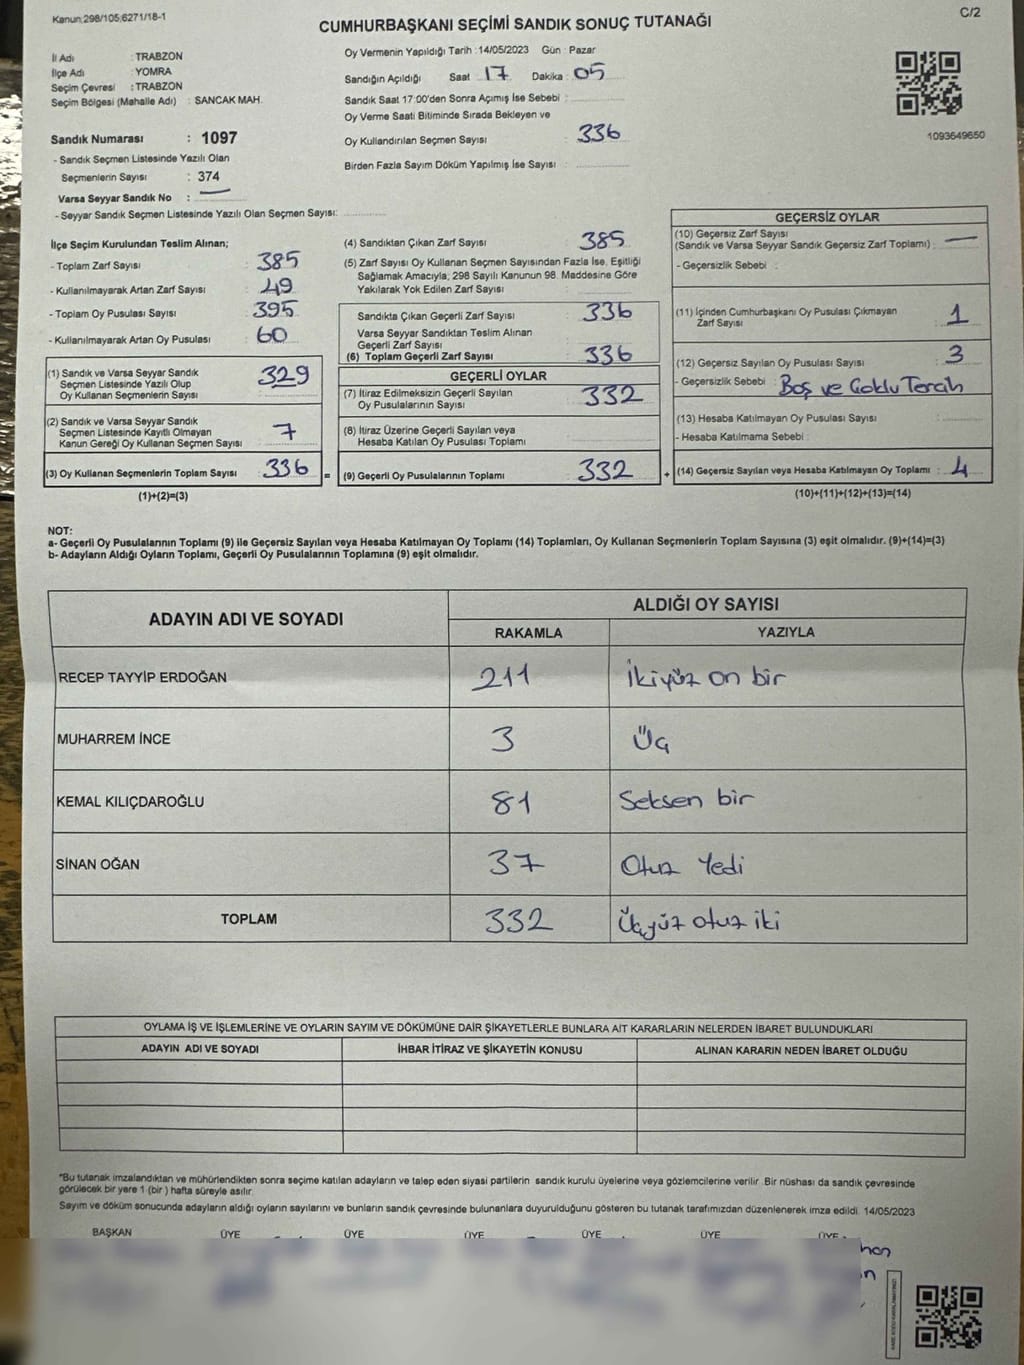 Kanun:298/105;6271/18-1
C/2
CUMHURBAŞKANI SEÇİMİ SANDIK SONUÇ TUTANAĞI
İl Adı : TRABZON
İlçe Adı : YOMRA
Seçim Çevresi : TRABZON
Seçim Bölgesi (Mahalle Adı) : SANCAK MAH.
Sandık Numarası : 1097
- Sandık Seçmen Listesinde Yazılı Olan
Seçmenlerin Sayısı : 374
Varsa Seyyar Sandık No : —
- Seyyar Sandık Seçmen Listesinde Yazılı Olan Seçmen Sayısı:
Oy Vermenin Yapıldığı Tarih : 14/05/2023 Gün : Pazar
Sandığın Açıldığı Saat 17 Dakika : 05
Sandık Saat 17:00'den Sonra Açımış İse Sebebi :
Oy Verme Saati Bitiminde Sırada Bekleyen ve
Oy Kullandırılan Seçmen Sayısı : 336
Birden Fazla Sayım Döküm Yapılmış İse Sayısı :
1093649650
İlçe Seçim Kurulundan Teslim Alınan;
- Toplam Zarf Sayısı : 385
- Kullanılmayarak Artan Zarf Sayısı : 49
- Toplam Oy Pusulası Sayısı : 395
- Kullanılmayarak Artan Oy Pusulası : 60
(1) Sandık ve Varsa Seyyar Sandık
Seçmen Listesinde Yazılı Olup
Oy Kullanan Seçmenlerin Sayısı : 329
(2) Sandık ve Varsa Seyyar Sandık
Seçmen Listesinde Kayıtlı Olmayan
Kanun Gereği Oy Kullanan Seçmen Sayısı : 7
(3) Oy Kullanan Seçmenlerin Toplam Sayısı : 336
(1)+(2)=(3)
(4) Sandıktan Çıkan Zarf Sayısı : 385
(5) Zarf Sayısı Oy Kullanan Seçmen Sayısından Fazla İse, Eşitliği
Sağlamak Amacıyla; 298 Sayılı Kanunun 98. Maddesine Göre
Yakılarak Yok Edilen Zarf Sayısı :
Sandıkta Çıkan Geçerli Zarf Sayısı : 336
Varsa Seyyar Sandıktan Teslim Alınan
Geçerli Zarf Sayısı :
(6) Toplam Geçerli Zarf Sayısı : 336
GEÇERLİ OYLAR
(7) İtiraz Edilmeksizin Geçerli Sayılan
Oy Pusulalarının Sayısı : 332
(8) İtiraz Üzerine Geçerli Sayılan veya
Hesaba Katılan Oy Pusulası Toplamı :
= (9) Geçerli Oy Pusulalarının Toplamı : 332 +
GEÇERSİZ OYLAR
(10) Geçersiz Zarf Sayısı
(Sandık ve Varsa Seyyar Sandık Geçersiz Zarf Toplamı) : —
- Geçersizlik Sebebi :
(11) İçinden Cumhurbaşkanı Oy Pusulası Çıkmayan
Zarf Sayısı : 1
(12) Geçersiz Sayılan Oy Pusulası Sayısı : 3
- Geçersizlik Sebebi : Boş ve Çoklu Tercih
(13) Hesaba Katılmayan Oy Pusulası Sayısı :
- Hesaba Katılmama Sebebi :
(14) Geçersiz Sayılan veya Hesaba Katılmayan Oy Toplamı : 4
(10)+(11)+(12)+(13)=(14)
NOT:
a- Geçerli Oy Pusulalarının Toplamı (9) ile Geçersiz Sayılan veya Hesaba Katılmayan Oy Toplamı (14) Toplamları, Oy Kullanan Seçmenlerin Toplam Sayısına (3) eşit olmalıdır. (9)+(14)=(3)
b- Adayların Aldığı Oyların Toplamı, Geçerli Oy Pusulalarının Toplamına (9) eşit olmalıdır.
ADAYIN ADI VE SOYADI
ALDIĞI OY SAYISI
RAKAMLA YAZIYLA
RECEP TAYYİP ERDOĞAN 211 İkiyüz on bir
MUHARREM İNCE 3 Üç
KEMAL KILIÇDAROĞLU 81 Seksen bir
SİNAN OĞAN 37 Otuz Yedi
TOPLAM 332 Üçyüz otuz iki
OYLAMA İŞ VE İŞLEMLERİNE VE OYLARIN SAYIM VE DÖKÜMÜNE DAİR ŞİKAYETLERLE BUNLARA AİT KARARLARIN NELERDEN İBARET BULUNDUKLARI
ADAYIN ADI VE SOYADI İHBAR İTİRAZ VE ŞİKAYETİN KONUSU ALINAN KARARIN NEDEN İBARET OLDUĞU
*Bu tutanak imzalandıktan ve mühürlendikten sonra seçime katılan adayların ve talep eden siyasi partilerin sandık kurulu üyelerine veya gözlemcilerine verilir. Bir nüshası da sandık çevresinde
görülecek bir yere 1 (bir ) hafta süreyle asılır.
Sayım ve döküm sonucunda adayların aldığı oyların sayılarını ve bunların sandık çevresinde bulunanlara duyurulduğunu gösteren bu tutanak tarafımızdan düzenlenerek imza edildi. 14/05/2023
BAŞKAN ÜYE ÜYE ÜYE ÜYE ÜYE ÜYE